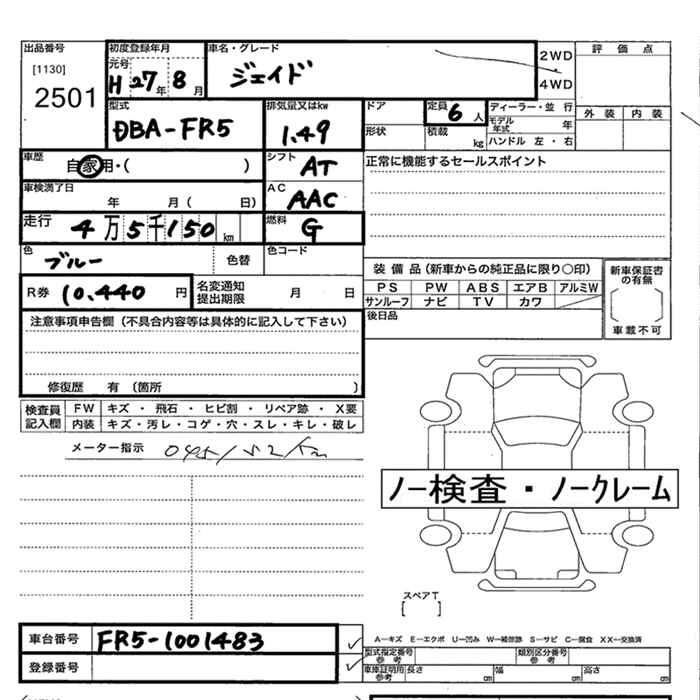 出品番号 初度登録年月 車名・グレード 評価点
[1130] 元号 2WD
2501 H 27年 8月 ジェイド 4WD
外装 内装
型式 排気量又はkw ドア 定員 6人 ディーラー・並行
DBA-FR5 1.49 形状 積載 kg モデル年式 年
ハンドル 左・右
車歴 自家用・( ) シフト AT 正常に機能するセールスポイント
車検満了日 年 月( 日) AC AAC
走行 4万5千150km 燃料 G
色 ブルー 色替 色コード
装備品(新車からの純正品に限り〇印) 新車保証書の有無
R券 10.440円 名変通知提出期限 月 日 PS PW ABS エアB アルミW
サンルーフ ナビ TV カワ
注意事項申告欄(不具合内容等は具体的に記入して下さい) 後日品 車載不可
修復歴 有 (箇所 )
検査員 FW キズ・飛石・ヒビ割・リペア跡・X要
記入欄 内装 キズ・汚レ・コゲ・穴・スレ・キレ・破レ
メーター指示
ノー検査・ノークレーム
スペアT
[ ]
車台番号 FR5-1001483 A―キズ E―エクボ U―凹み W―補修跡 S―サビ C―腐食 XX―交換済
型式指定番号参考 類別区分番号参考
登録番号 車庫証明用参考 長さ cm 幅 cm 高さ cm